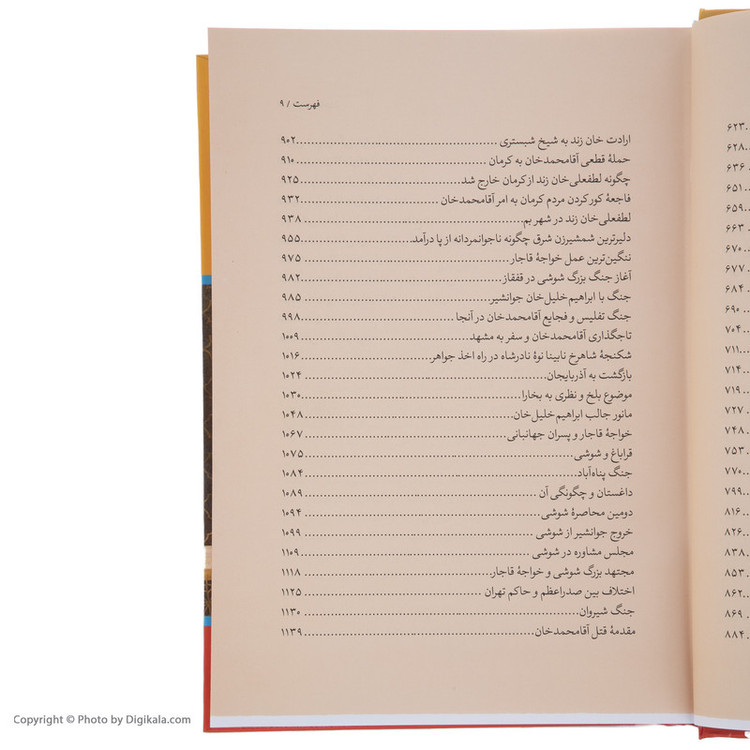 فهرست / ۹
ارادت خان زند به شیخ شبستری ........ ۹۰۲
حملهٔ قطعی آقامحمدخان به کرمان ........ ۹۱۰
چگونه لطفعلی‌خان زند از کرمان خارج شد ........ ۹۲۵
فاجعهٔ کور کردن مردم کرمان به امر آقامحمدخان ........ ۹۳۲
لطفعلی‌خان زند در شهر بم ........ ۹۳۸
دلیرترین شمشیرزن شرق چگونه ناجوانمردانه از پا درآمد ........ ۹۵۵
ننگین‌ترین عمل خواجهٔ قاجار ........ ۹۷۵
آغاز جنگ بزرگ شوشی در قفقاز ........ ۹۸۲
جنگ با ابراهیم خلیل‌خان جوانشیر ........ ۹۸۵
جنگ تفلیس و فجایع آقامحمدخان در آنجا ........ ۹۹۸
تاجگذاری آقامحمدخان و سفر به مشهد ........ ۱۰۰۹
شکنجهٔ شاهرخ نابینا نوهٔ نادرشاه در راه اخذ جواهر ........ ۱۰۱۶
بازگشت به آذربایجان ........ ۱۰۲۴
موضوع بلخ و نظری به بخارا ........ ۱۰۳۰
مانور جالب ابراهیم خلیل‌خان ........ ۱۰۴۸
خواجهٔ قاجار و پسران جهانبانی ........ ۱۰۶۷
قراباغ و شوشی ........ ۱۰۷۵
جنگ پناه‌آباد ........ ۱۰۸۴
داغستان و چگونگی آن ........ ۱۰۸۹
دومین محاصرهٔ شوشی ........ ۱۰۹۴
خروج جوانشیر از شوشی ........ ۱۰۹۹
مجلس مشاوره در شوشی ........ ۱۱۰۹
مجتهد بزرگ شوشی و خواجهٔ قاجار ........ ۱۱۱۸
اختلاف بین صدراعظم و حاکم تهران ........ ۱۱۲۵
جنگ شیروان ........ ۱۱۳۰
مقدمهٔ قتل آقامحمدخان ........ ۱۱۳۹
۶۲۳
۶۲۸
۶۳۶
۶۵۱
۶۵۹
۶۶۳
۶۷۰
۶۷۷
۶۸۴
۶۹۰
۷۰۴
۷۱۱
۷۱۴
۷۱۹
۷۲۷
۷۴۸
۷۵۳
۷۷۰
۷۹۹
۸۱۶
۸۲۶
۸۳۸
۸۵۳
۸۶۲
۸۶۹
۸۸۴
Copyright © Photo by Digikala.com